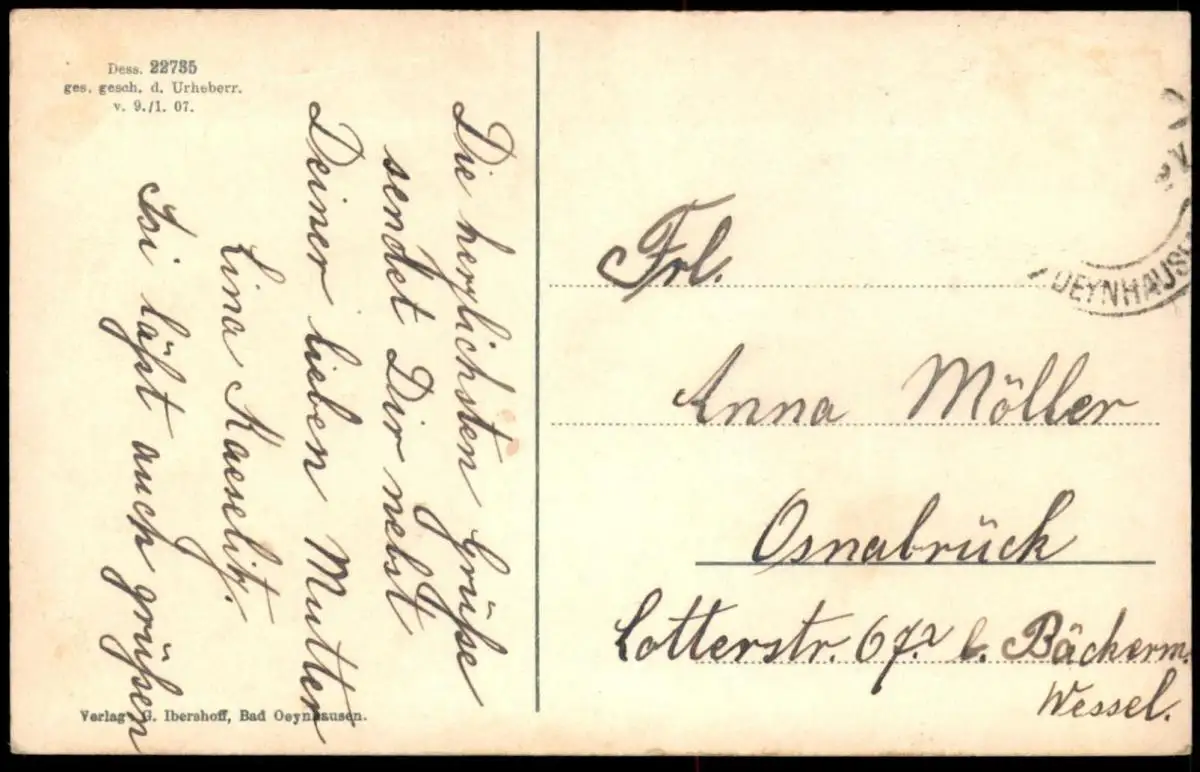 Dess. 22735
ges. gesch. d. Urheberr.
v. 9./1. 07.
Die herzlichsten Grüße
sendet Dir nebst
Deiner lieben Mutter
Lina Kaeselitz.
Isi läßt auch grüßen
Verlag G. Ibershoff, Bad Oeynhausen.
OEYNHAUSEN
Frl.
Anna Möller
Osnabrück
Lotterstr. 67.² b. Bäckerm.
Wessel.